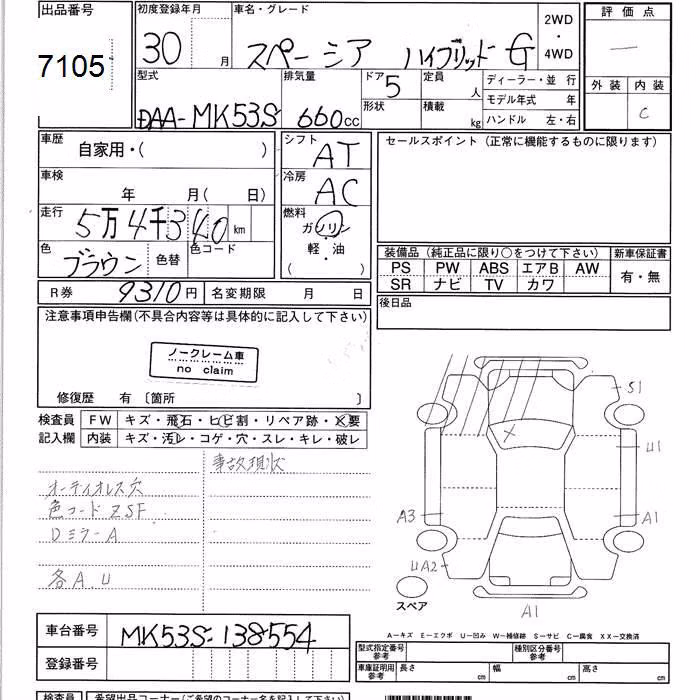 出品番号
7105
初度登録年月
30 月
車名・グレード
スペーシア ハイブリッド G
2WD
・
4WD
評価点
—
外装 内装
C
型式
DAA-MK53S
排気量
660cc
ドア 5
形状
定員 人
積載 kg
ディーラー・並行
モデル年式 年
ハンドル 左・右
車歴
自家用・( )
車検
年 月( 日)
走行
5万4千340 km
色
ブラウン
色替
色コード
シフト
AT
冷房
AC
燃料
ガソリン
・
軽・油
( )
セールスポイント(正常に機能するものに限ります)
装備品(純正品に限り○をつけて下さい)
PS PW ABS エアB AW
SR ナビ TV カワ
新車保証書
有・無
R券 9310円
名変期限 月 日
後日品
注意事項申告欄(不具合内容等は具体的に記入して下さい)
ノークレーム車
no claim
修復歴 有〔箇所 〕
検査員
記入欄
FW キズ・飛石・ヒビ割・リペア跡・×要
内装 キズ・汚レ・コゲ・穴・スレ・キレ・破レ
事故現状
オーディオレス穴
色コード ZSF
Dミラー A
各A.U
S1
U1
X
A3
A1
UA2
A1
スペア
車台番号 MK53S-138554
登録番号
A−キズ E−エクボ U−凹み W−補修跡 S−サビ C−腐食 XX−交換済
型式指定番号
参考
種別区分番号
参考
車庫証明用
参考
長さ cm 幅 cm 高さ cm
検査員 希望出品コーナー(ご希望のコーナー名を記入して下さい)